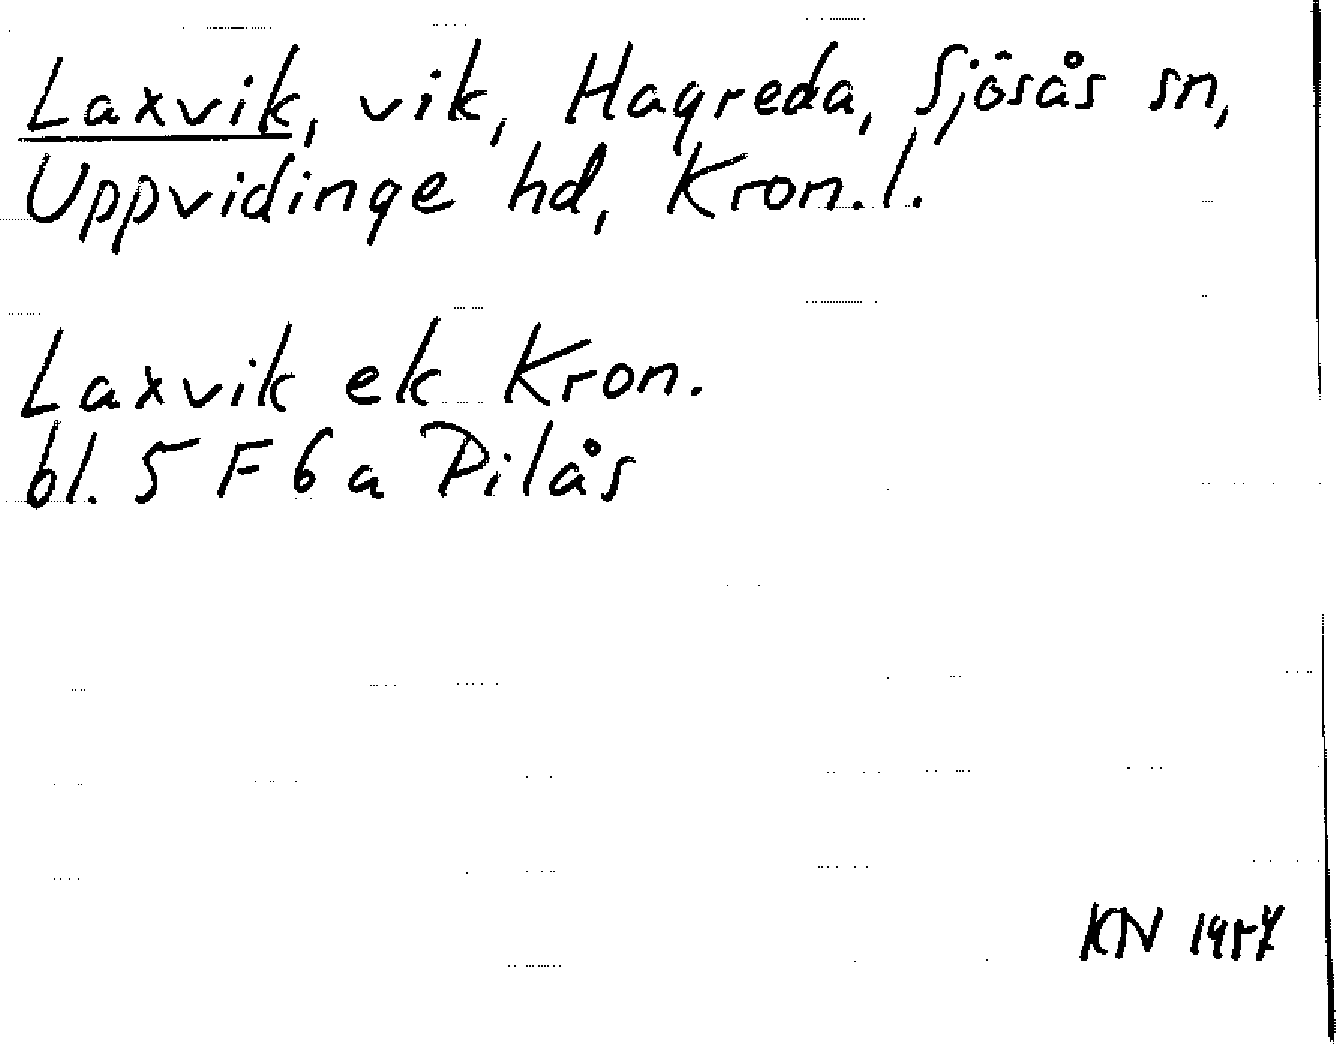 Laxvik, vik, Hagreda, Sjösås sn,
Uppvidinge hd, Kron.l.
Laxvik ek Kron.
bl. 5 F 6 a Pilås
KN 1957